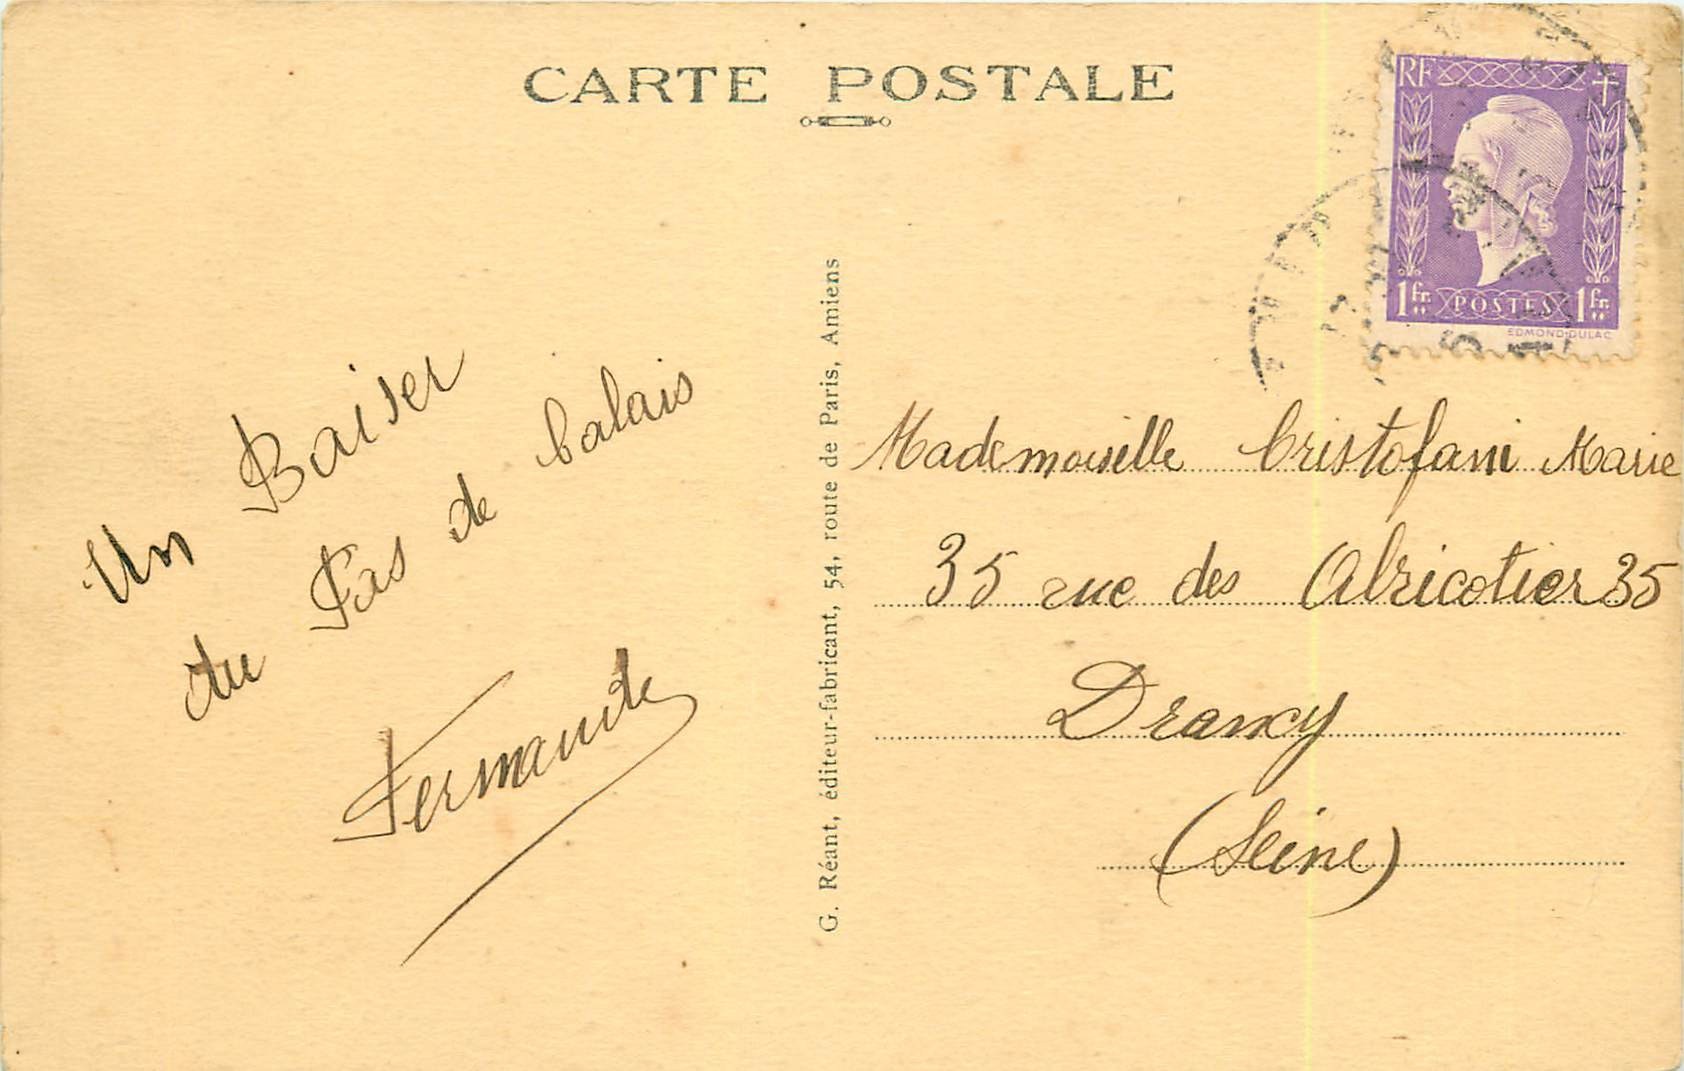 CARTE POSTALE
RF
1fr. POSTES 1fr.
EDMOND·DULAC
Un Baiser
du Pas de Calais
Fernande
G. Réant, éditeur-fabricant, 54, route de Paris, Amiens
Mademoiselle Cristofani Marie
35 rue des Abricotier 35
Drancy
(Seine)